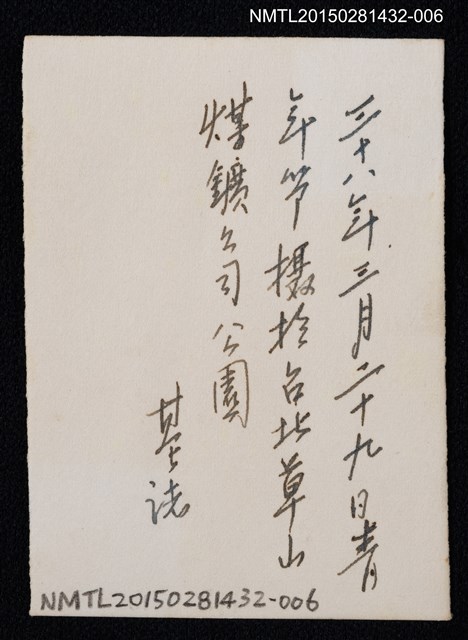 NMTL20150281432-006
三十八年三月二十九日青
年节摄於台北草山
煤鑛公司公園
基誌
NMTL20150281432-006